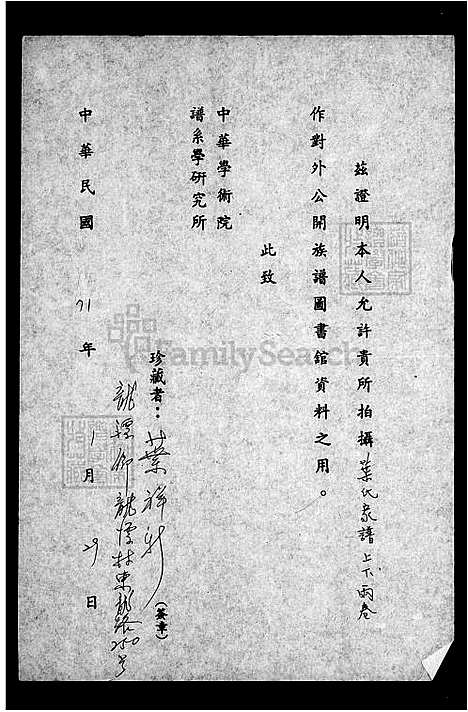 茲證明本人允許貴所拍攝葉氏家譜上下兩卷
作對外公開族譜圖書館資料之用。
此致
中華學術院
譜系學研究所
珍藏者：葉祥新(簽章)
龍潭鄉龍潭村東龍路250号
中華民國71年1月29日
FamilySearch